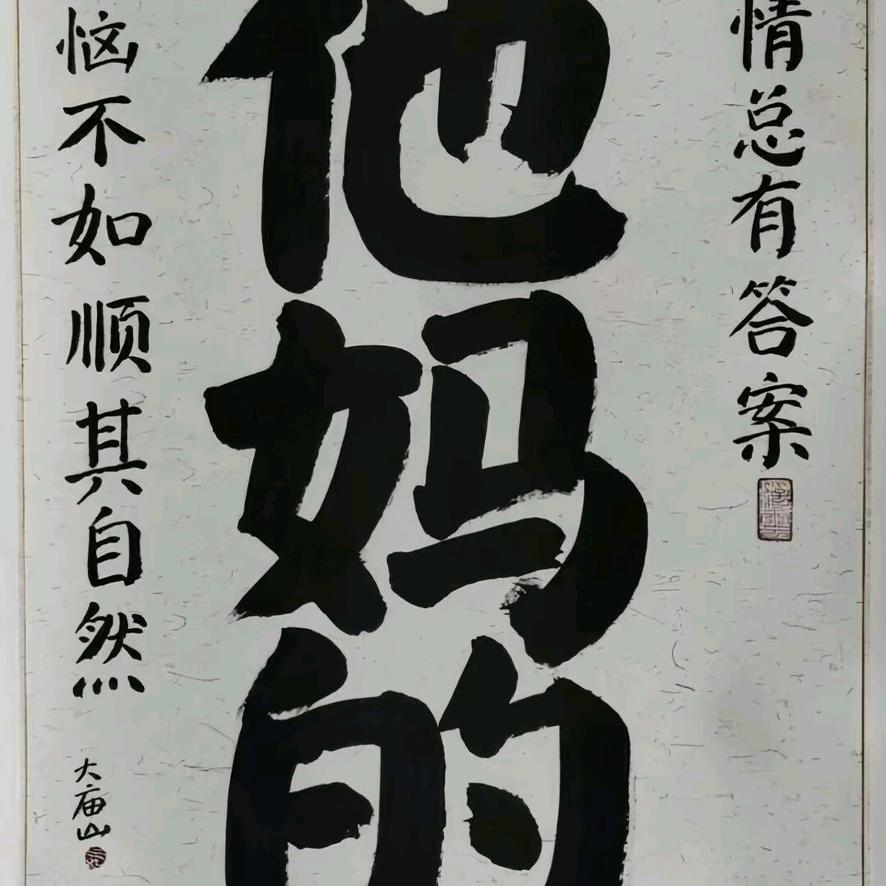 情总有答案
他妈的
恼不如顺其自然
大庙山